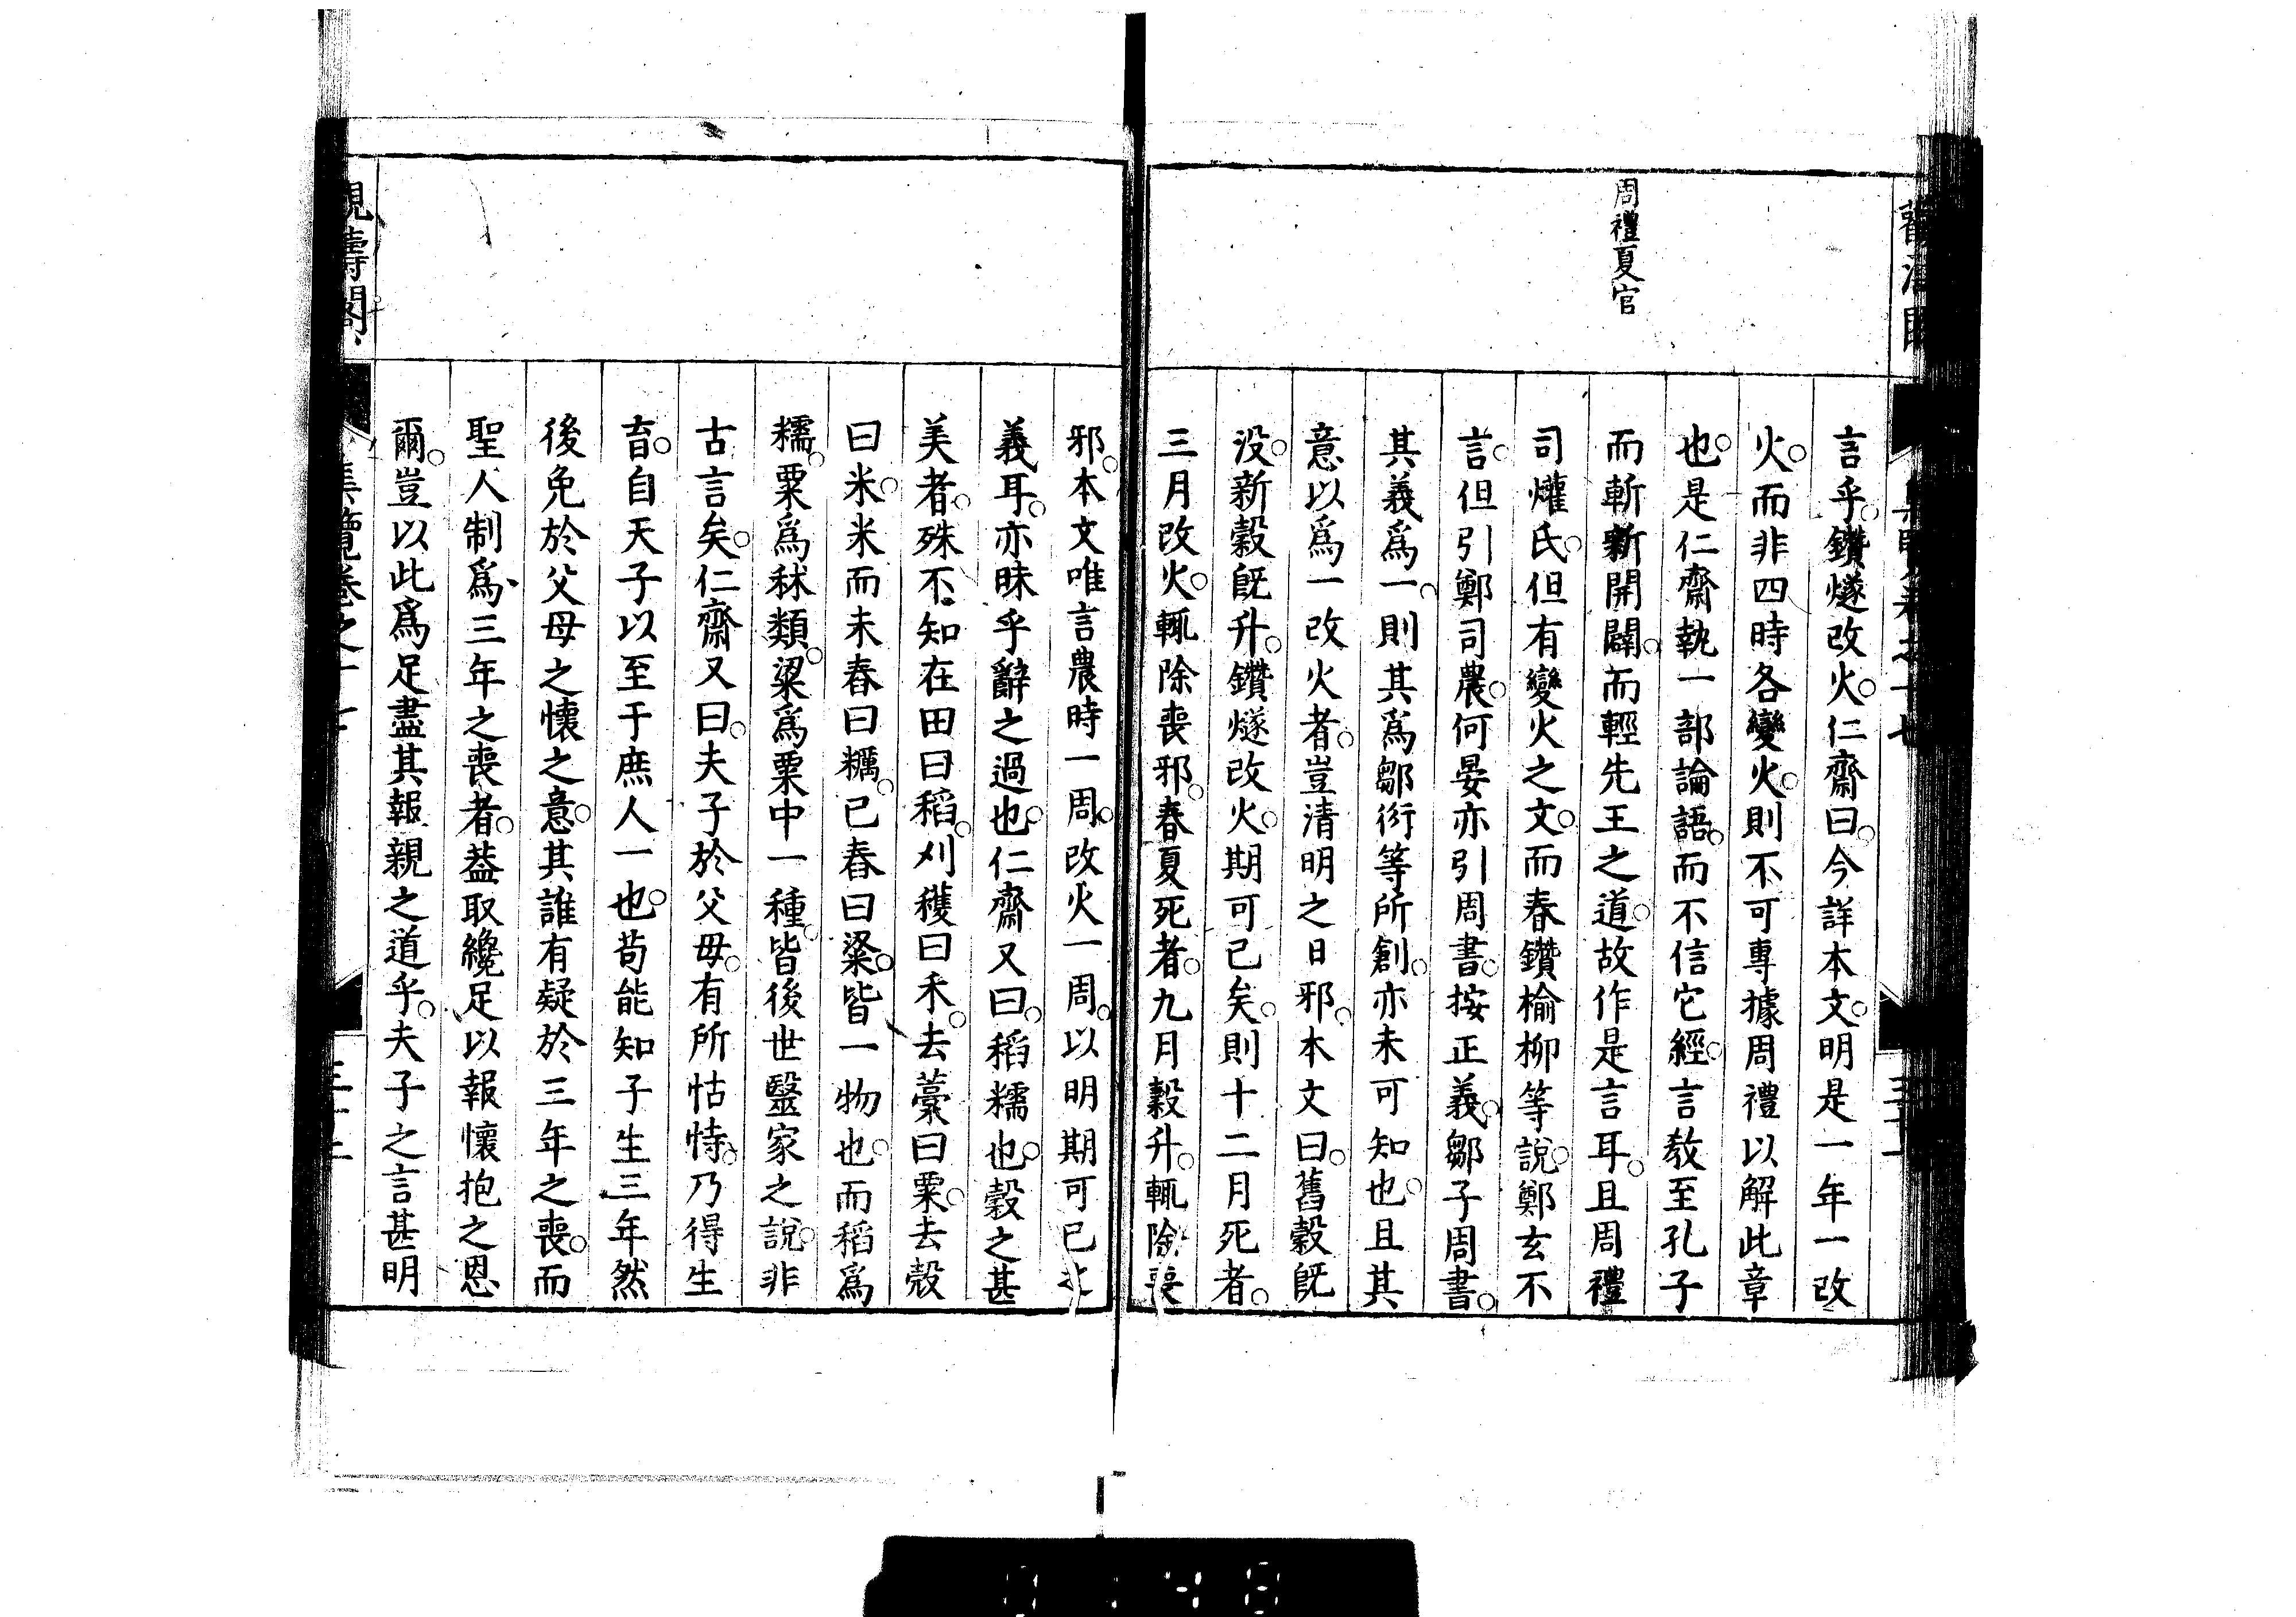 周禮夏官
言乎。鑽燧改火。仁齋曰。今詳本文。明是一年一改
火。而非四時各變火。則不可專據周禮以解此章
也。是仁齋執一部論語。而不信它經。言教至孔子
而斬新開闢。而輕先王之道。故作是言耳。且周禮
司爟氏。但有變火之文。而春鑽楡柳等說。鄭玄不
言。但引鄭司農。何晏亦引周書。按正義。鄒子周書。
其義爲一。則其爲鄒衍等所創。亦未可知也。且其
意以爲一改火者。豈清明之日邪。本文曰。舊穀既
没。新穀既升。鑽燧改火。期可已矣。則十二月死者。
三月改火。輒除喪邪。春夏死者。九月穀升。輒除喪
邪。本文唯言農時一周。改火一周。以明期可已
義耳。亦昧乎辭之過也。仁齋又曰。稻糯也。穀之甚
美者。殊不知在田曰稻。刈穫曰禾。去藁曰粟。去殻
曰米。米而未舂曰糲。已舂曰粱。皆一物也。而稻爲
糯。粟爲秫類。粱爲粟中一種。皆後世毉家之說。非
古言矣。仁齋又曰。夫子於父母。有所怙恃。乃得生
育。自天子以至于庶人一也。苟能知子生三年然
後免於父母之懷之意。其誰有疑於三年之喪。而
聖人制爲三年之喪者。葢取纔足以報懷抱之恩
爾。豈以此爲足盡其報親之道乎。夫子之言甚明